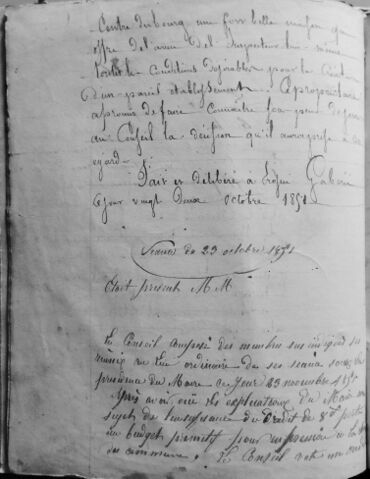 Centre du bourg une fort belle maison qui
offre de l'aveu de l'inspecteur lui même
toutes les conditions désirables pour la Création
d'un pareil établissement. Le propriétaire
a promis de faire connaitre sous peu de jours
au Conseil la décision qu'il aura prise à cet
égard.
Fait et délibéré à
ce jour vingt deux octobre 1851
Séance du 23 octobre 1851
Etait présent M M
Le Conseil composé des membres sus indiqués s'est
réunis au lieu ordinaire de ses séances sous la
présidence du Maire ce jour 23 novembre 1851
Après avoir ouï les explications du Maire au
sujet de l'insuffisance du Crédit de 8f porté
au budget primitif pour impression à la
des communes. Le Conseil vote